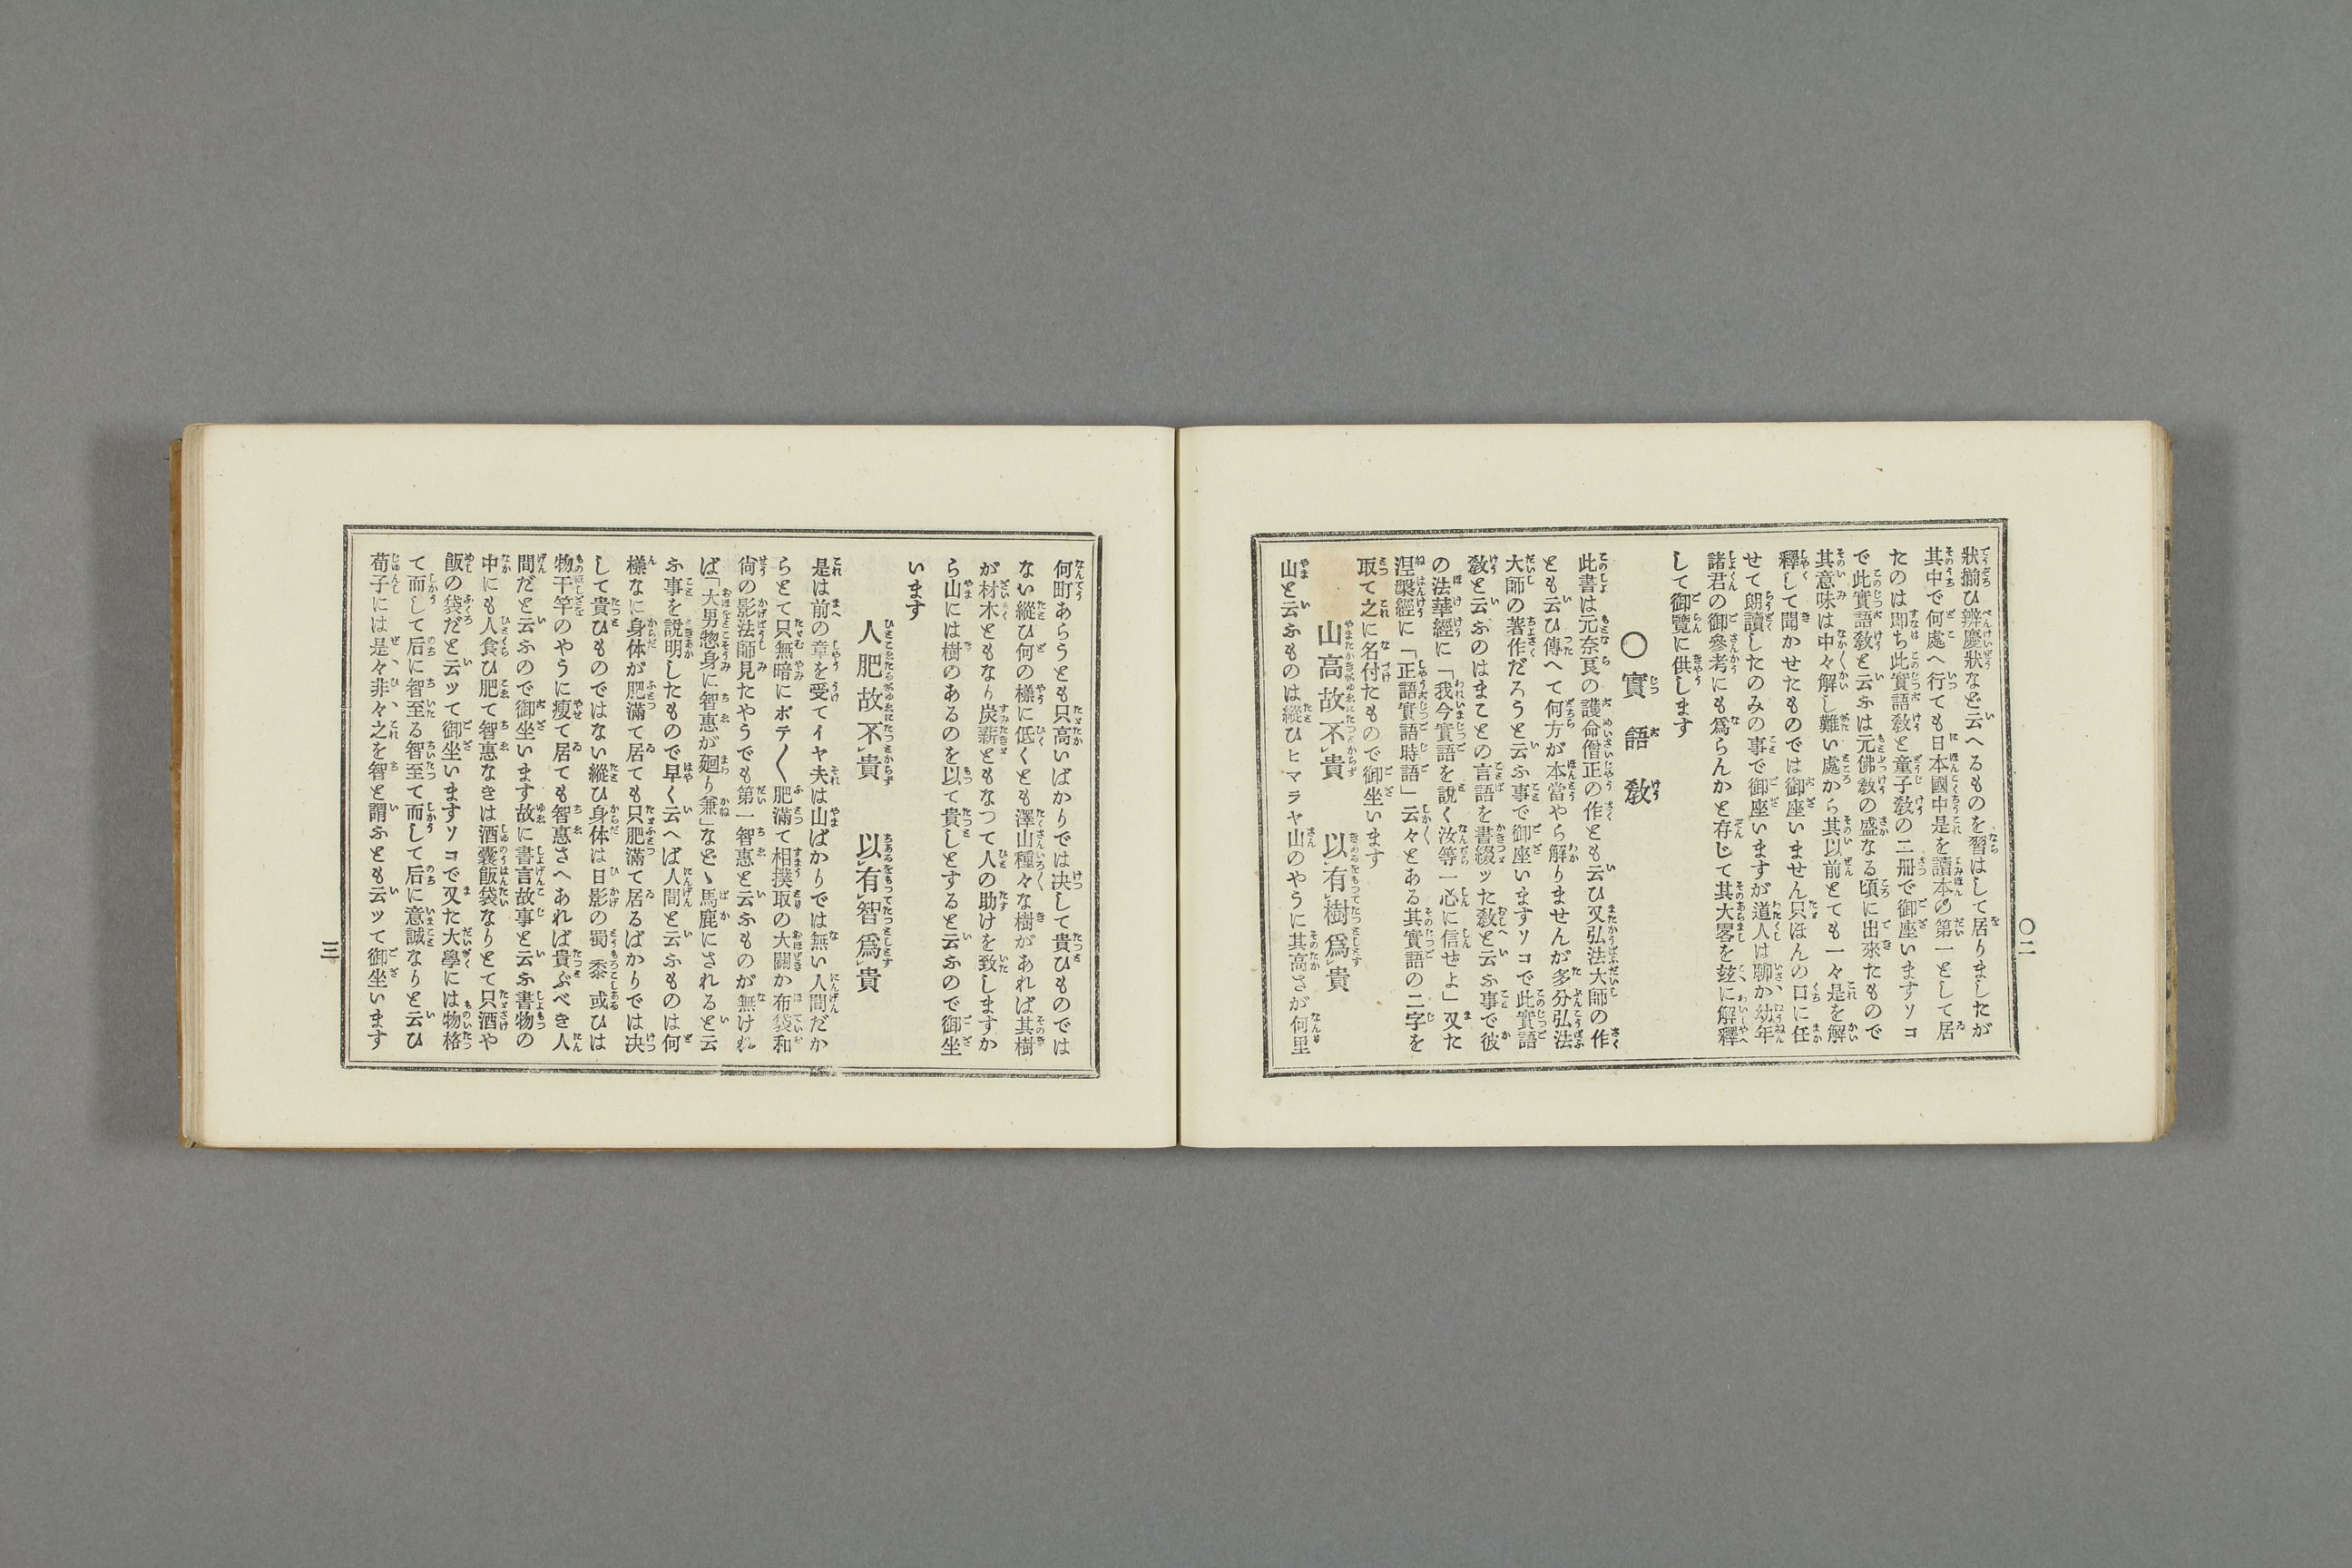 狀揃ひ辨慶狀などゝ云へるものを習はして居りましたが
其中で何處へ行ても日本國中是を讀本の第一として居
たのは即ち此實語敎と童子敎の二冊で御座いますソコ
で此實語敎と云ふは元佛敎の盛なる頃に出來たもので
其意味は中々解し難い處から其以前とても一々是を解
釋して聞かせたものでは御座いません只ほんの口に任
せて朗讀したのみの事で御座いますが道人は聊か幼年
諸君の御參考にも爲らんかと存じて其大畧を玆に解釋
して御覽に供します
〇實語敎
此書は元奈良の護命僧正の作とも云ひ又弘法大師の作
とも云ひ傳へて何方が本當やら解りませんが多分弘法
大師の著作だろうと云ふ事で御座いますソコで此實語
敎と云ふのはまことの言語を書綴ッた敎と云ふ事で彼
の法華經に「我今實語を說く汝等一心に信ぜよ」又た
涅槃經に「正語實語時語」云々とある其實語の二字を
取て之に名付たもので御坐います
山高故不貴 以有樹爲貴
山と云ふものは縱ひヒマラヤ山のやうに其高さが何里
〇二
何町あらうとも只高いばかりでは決して貴ひものでは
ない縱ひ何の樣に低くとも澤山種々な樹があれば其樹
が材木ともなり炭薪ともなつて人の助けを致しますか
ら山には樹のあるのを以て貴しとすると云ふので御坐
います
人肥故不貴 以有智爲貴
是は前の章を受てイヤ夫は山ばかりでは無い人間だか
らとて只無暗にボテ〱肥滿て相撲取の大關か布袋和
尙の影法師見たやうでも第一智惠と云ふものが無けれ
ば「大男惣身に智惠が廻り兼」などゝ馬鹿にされると云
ふ事を說明したもので早く云へば人間と云ふものは何
樣なに身体が肥滿て居ても只肥滿て居るばかりでは決
して貴ひものではない縱ひ身体は日影の蜀黍或ひは
物干竿のやうに瘦て居ても智惠さへあれば貴ぶべき人
間だと云ふので御坐います故に書言故事と云ふ書物の
中にも人食ひ肥て智惠なきは酒囊飯袋なりとて只酒や
飯の袋だと云ッて御坐いますソコで又た大學には物格
て而して后に智至る智至て而して后に意誠なりと云ひ
荀子には是々、非々、之を智と謂ふとも云ッて御坐います
三